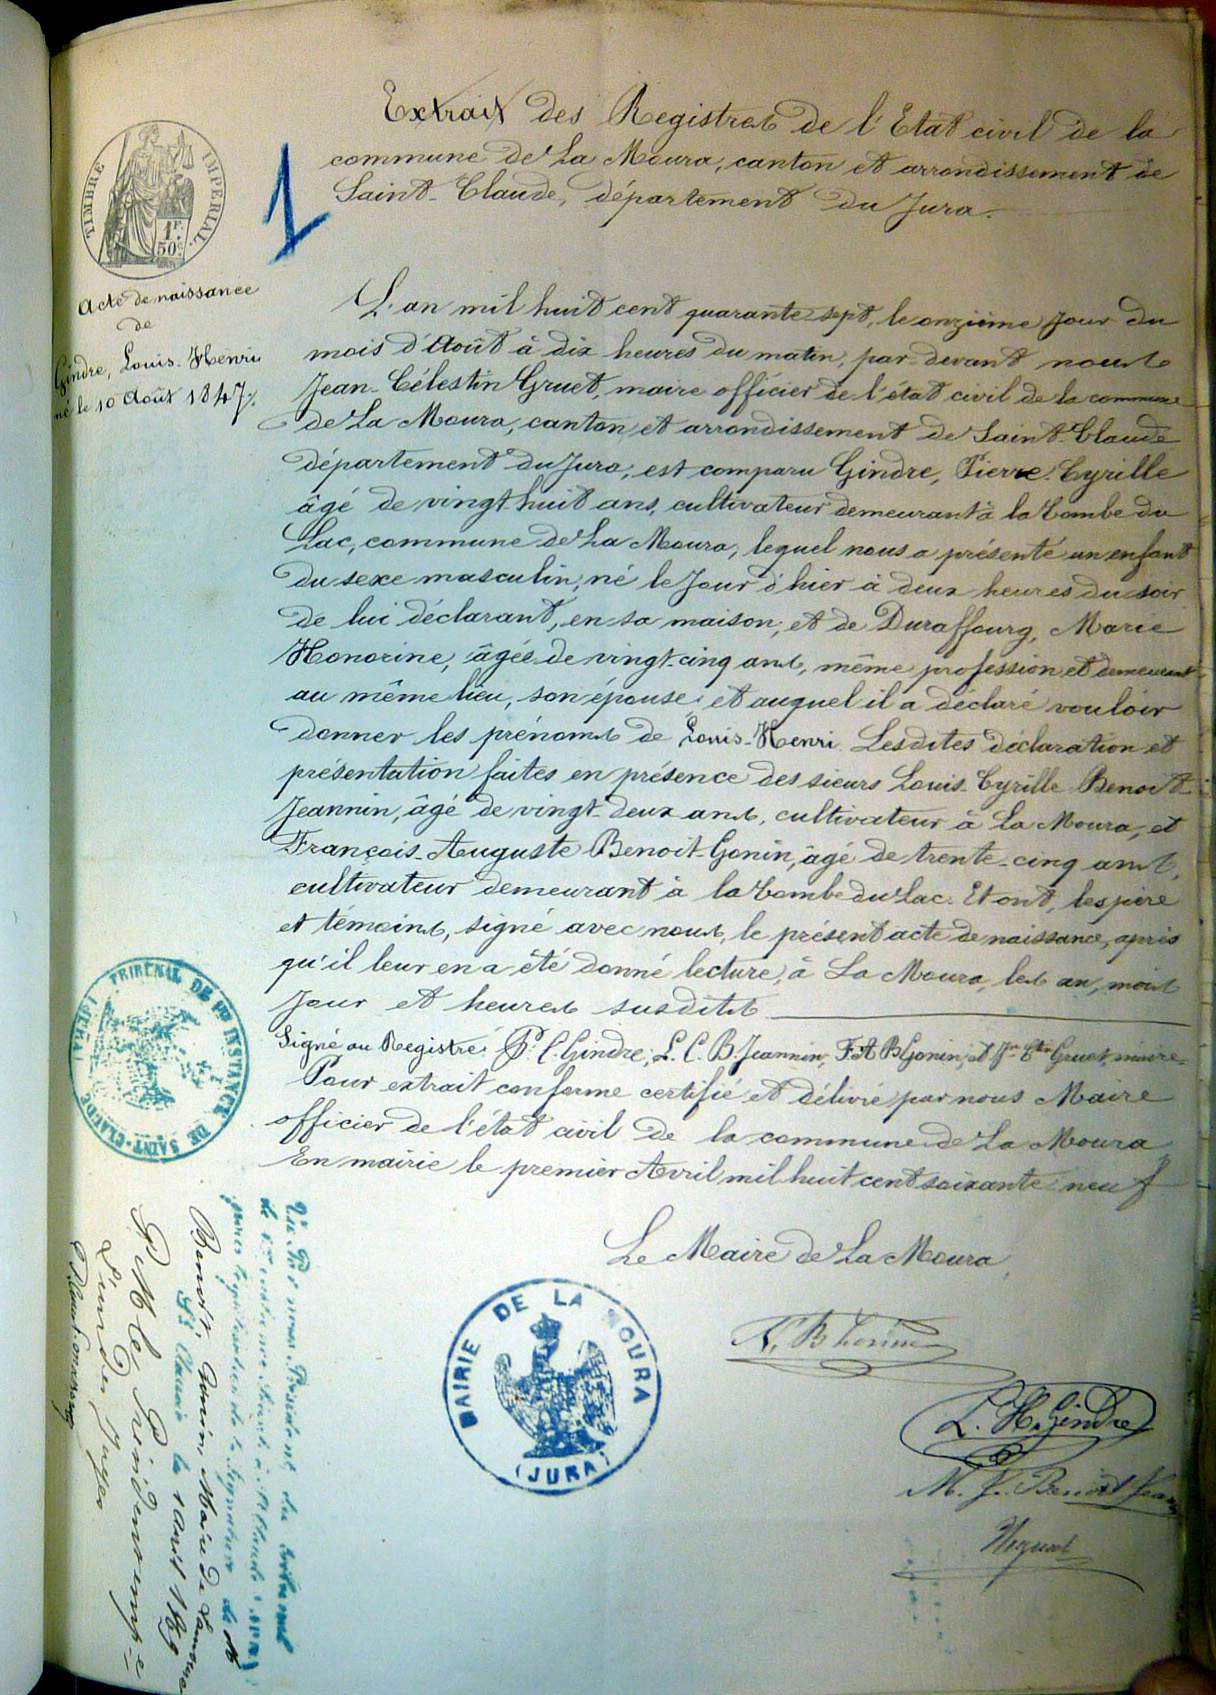 Extrait des Registres de l'Etat civil de la
commune de La Moura, canton et arrondissement de
Saint-Claude, département du Jura.
1
TIMBRE IMPERIAL
1F.
50c.
Acte de naissance
de
Gindre, Louis-Henri
né le 10 Août 1847.
L'an mil huit cent quarante sept, le onzième jour du
mois d'Août à dix heures du matin, par-devant nous
Jean-Célestin Gruet, maire officier de l'état civil de la commune
de La Moura, canton et arrondissement de Saint-Claude
département du Jura, est comparu Gindre, Pierre-Cyrille
âgé de vingt-huit ans, cultivateur demeurant à la Combe du
Lac, commune de La Moura, lequel nous a présenté un enfant
du sexe masculin, né le jour d'hier à deux heures du soir
de lui déclarant, en sa maison, et de Duraffourg, Marie
Honorine, âgée de vingt-cinq ans, même profession et demeurant
au même lieu, son épouse et auquel il a déclaré vouloir
donner les prénoms de Louis-Henri. Lesdites déclaration et
présentation faites en présence des sieurs Louis-Cyrille Benoit-
Jeannin, âgé de vingt-deux ans, cultivateur à La Moura, et
François-Auguste Benoit-Gonin, âgé de trente-cinq ans,
cultivateur demeurant à la Combe du Lac. Et ont, les père
et témoins, signé avec nous, le présent acte de naissance, après
qu'il leur en a été donné lecture, à La Moura, les an, mois
jour et heures susdits
Signé au Registre: P. C. Gindre; L. C. B. Jeannin; F. A B Gonin; et Jn Ctin Gruet, maire
Pour extrait conforme certifié et délivré par nous Maire
officier de l'état civil de la commune de La Moura
En mairie le premier Avril mil huit cent soixante neuf
Le Maire de La Moura
L. H. Gindre
M. J. Benoit Jean
MAIRIE DE LA MOURA
(JURA)
TRIBUNAL DE 1re INSTANCE DE SAINT-CLAUDE (JURA)
Vu Par nous Président du tribunal
de 1re instance Séant à St Claude (Jura)
pour légalisation de la Signature de M
Benoit Gonin, Maire de Lamoura
St Claude le 1 Avril 1869
P. M. le Président empé
L'un des Juges